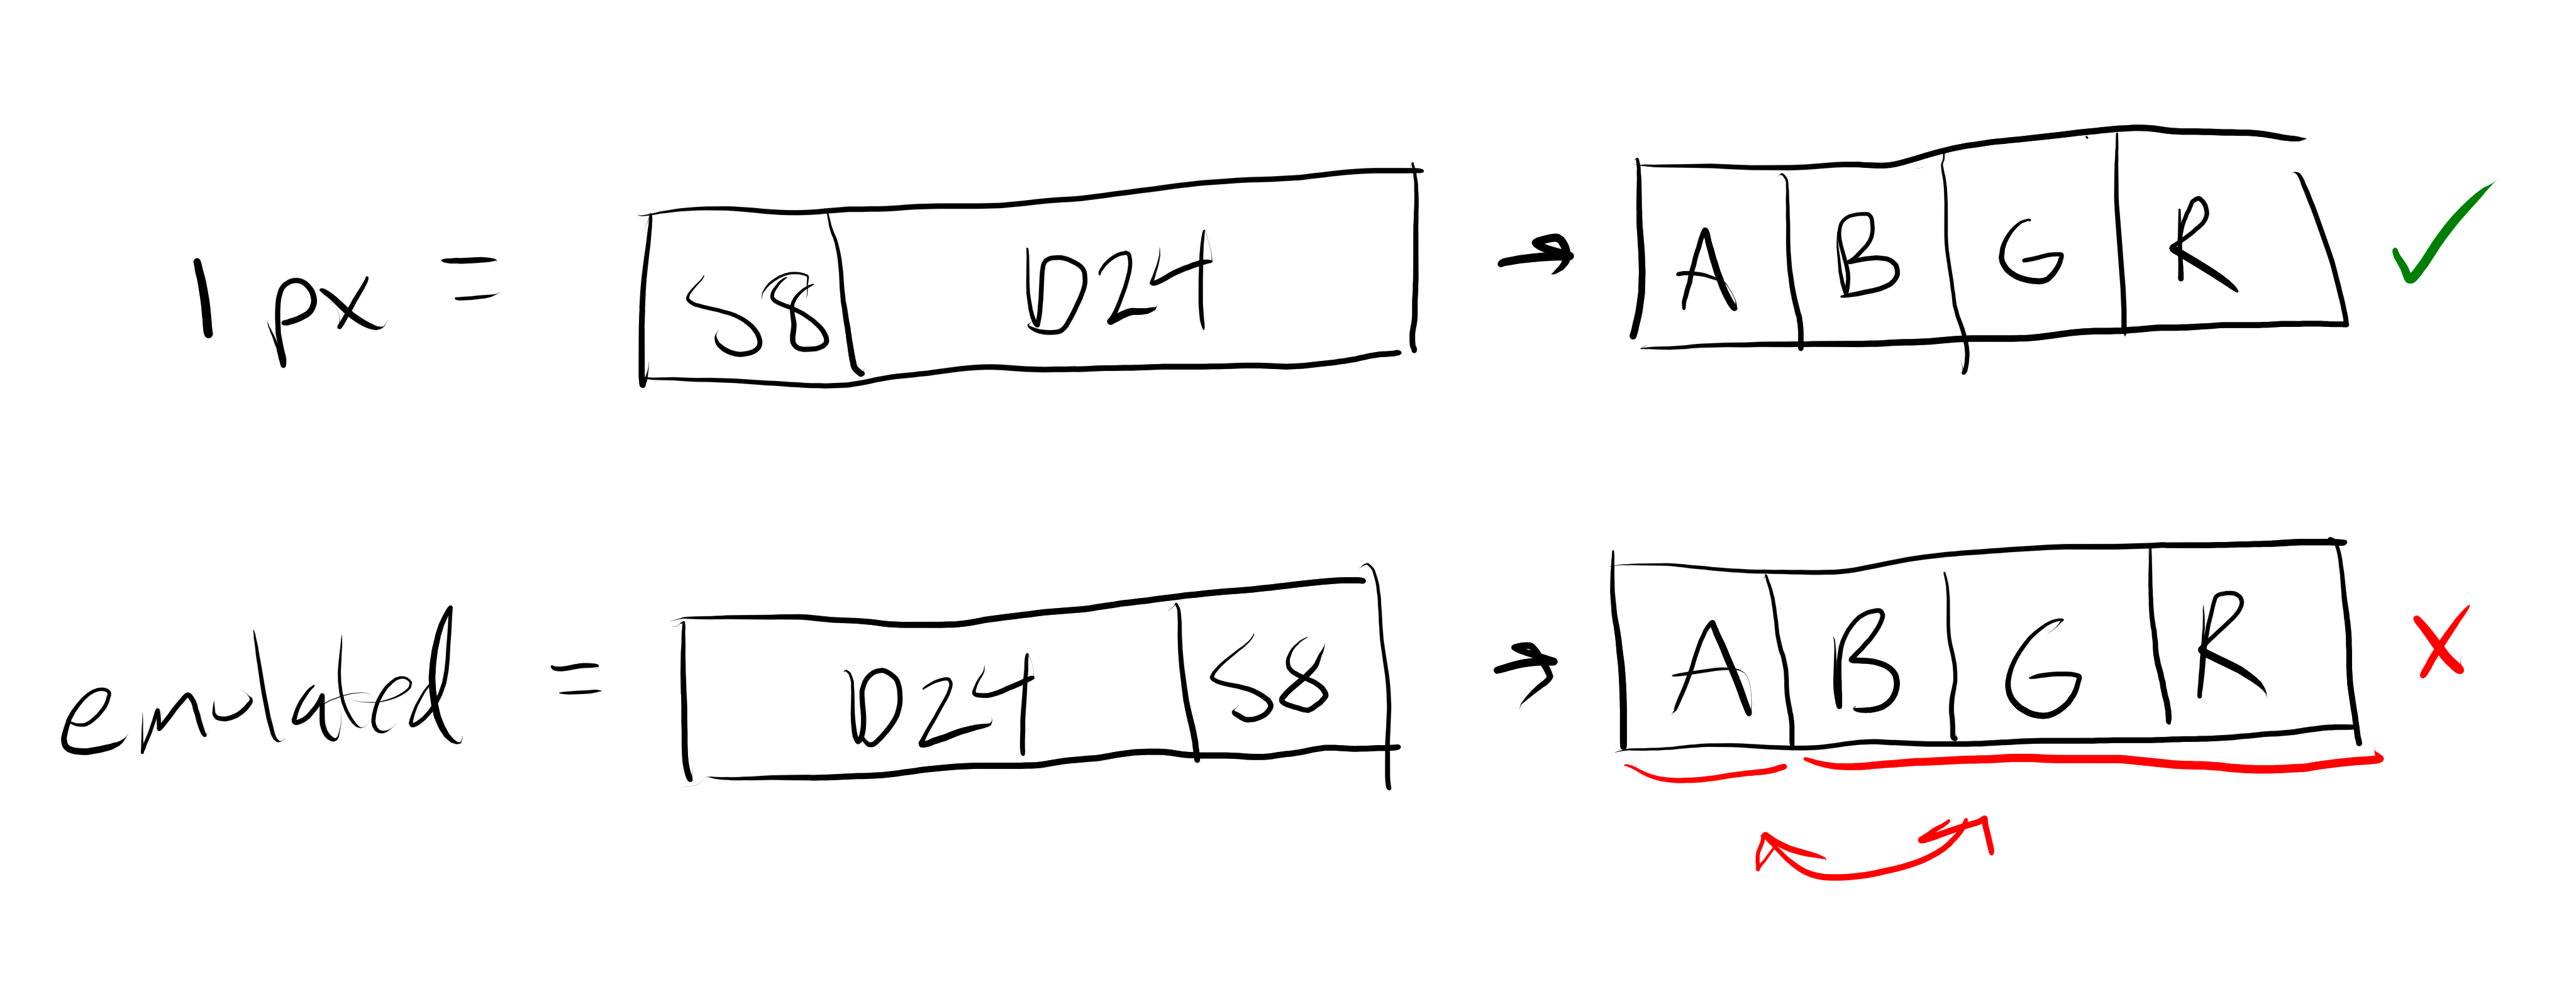 1 px = S8 D24 → A B G R ✓
emulated = D24 S8 → A B G R X